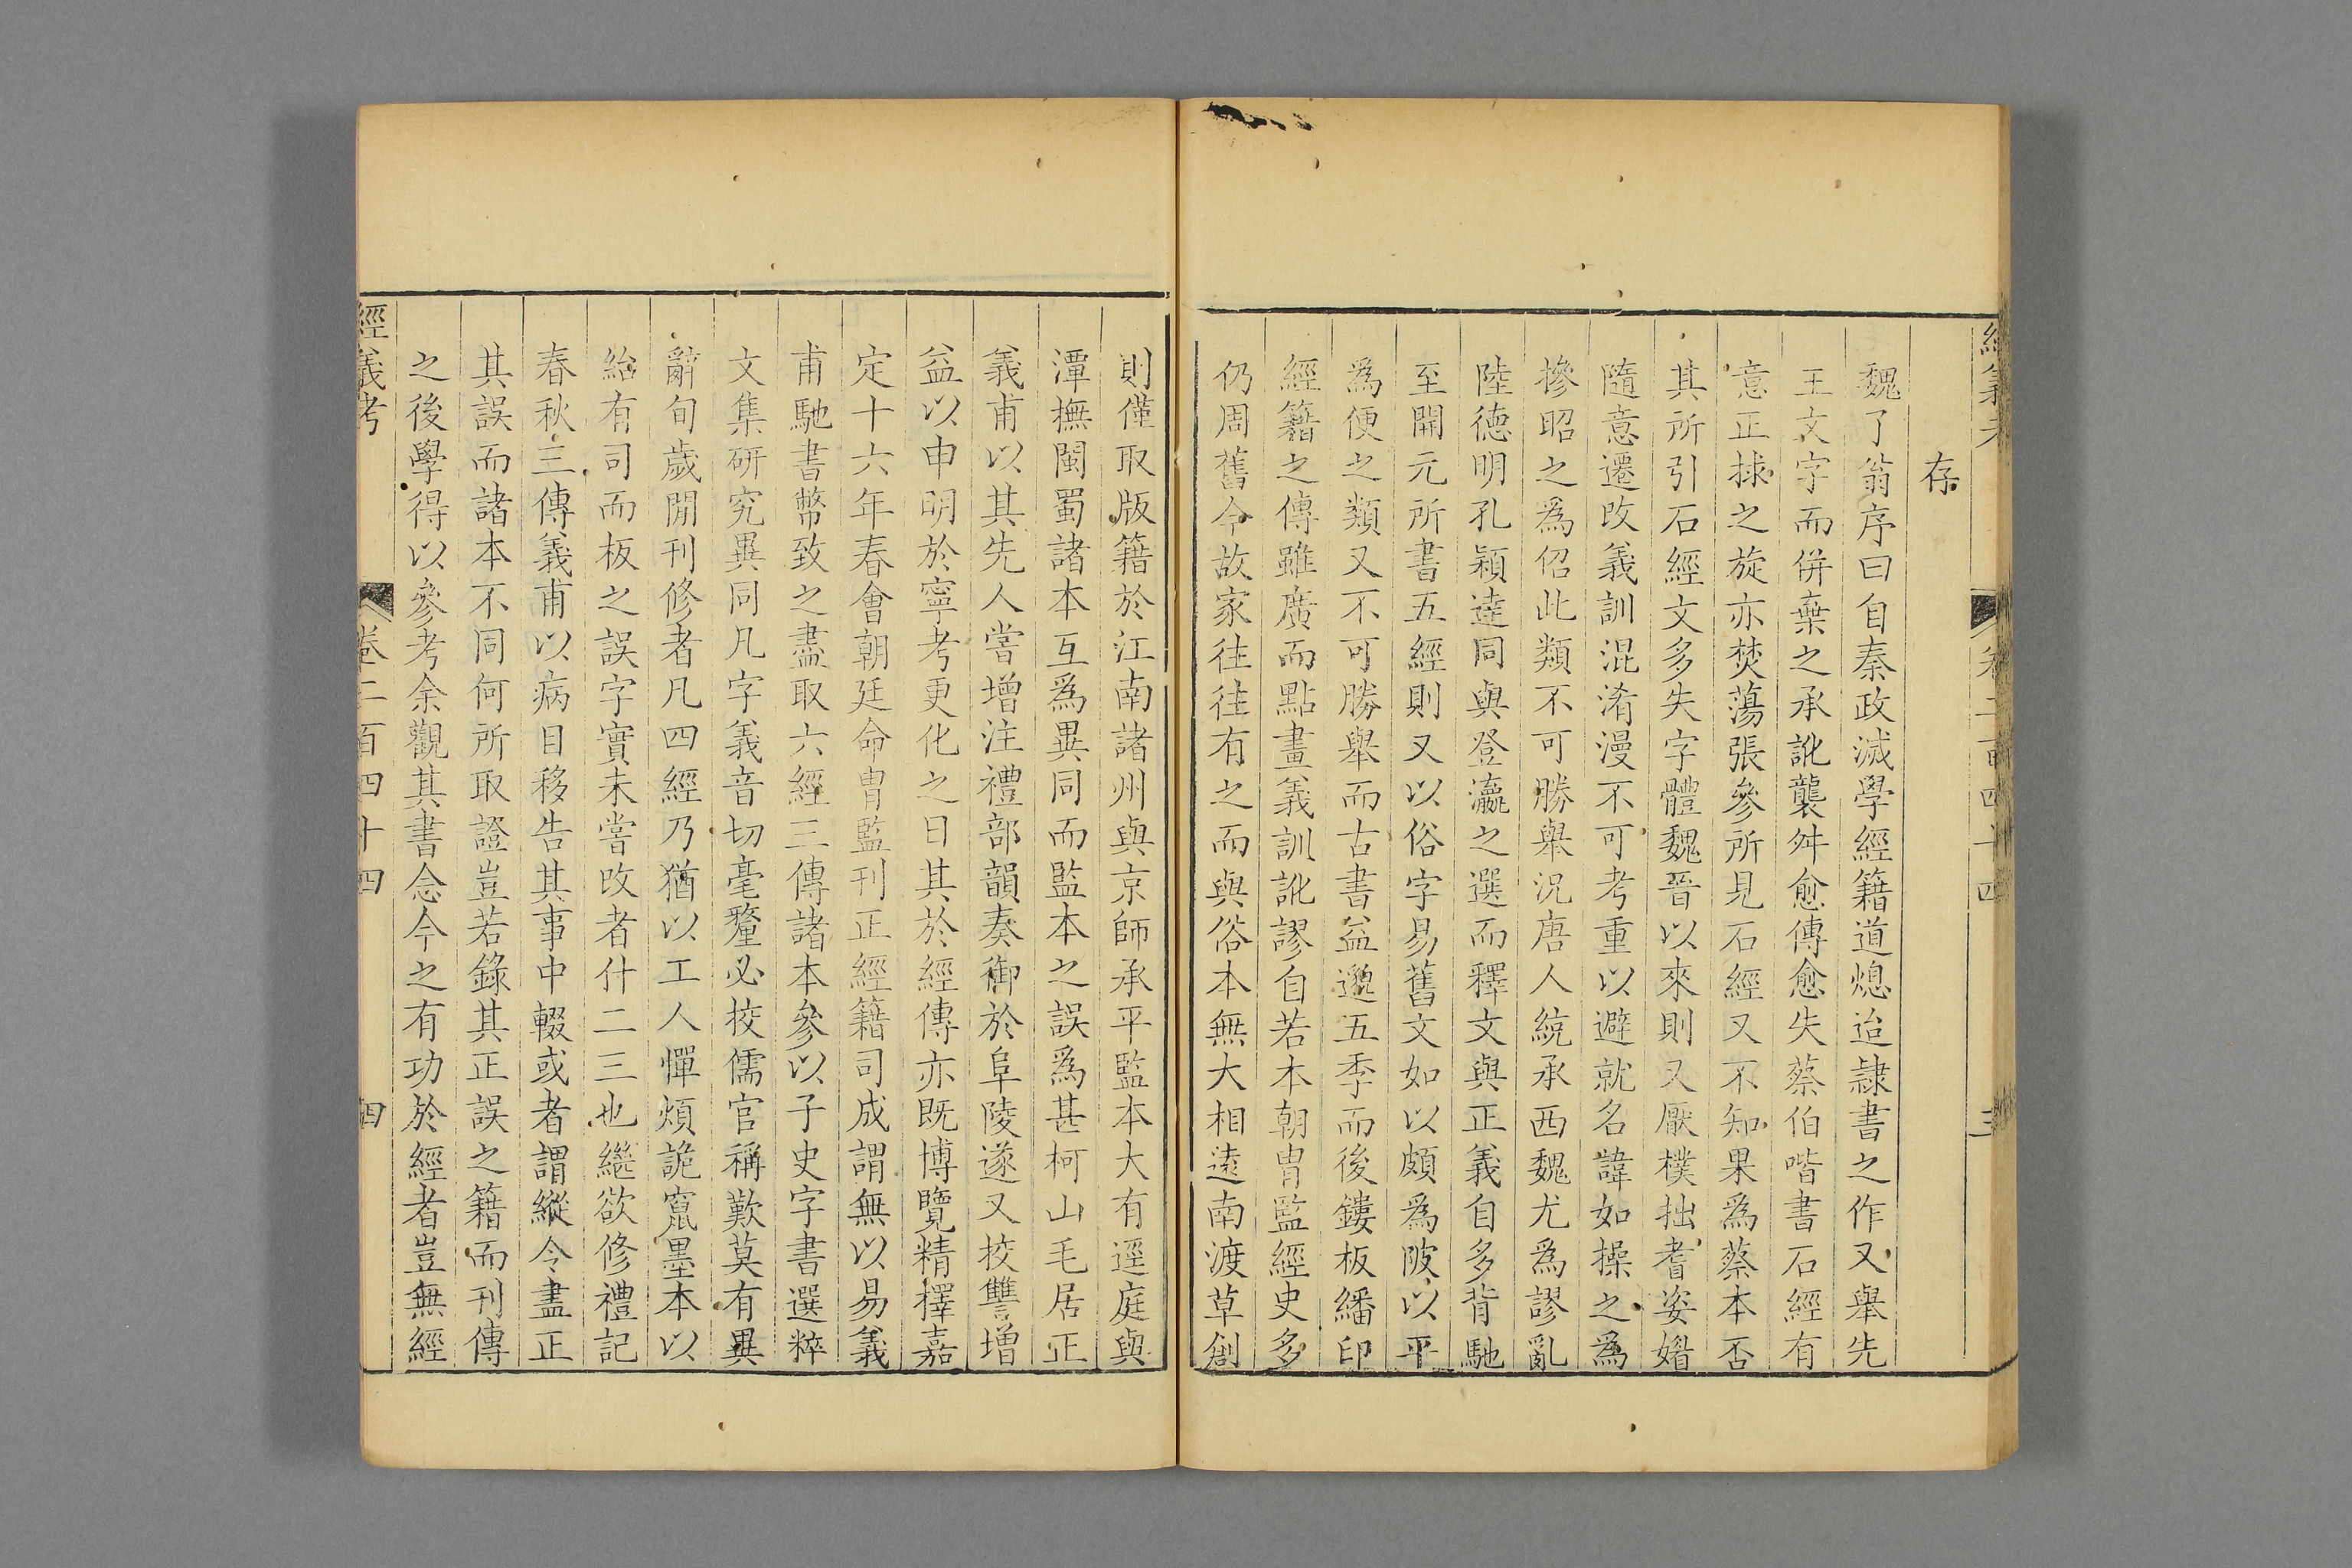 經義考 卷二百四十四 三
存
魏了翁序曰自秦政滅學經籍道熄迨隸書之作又舉先
王文字而併棄之承訛襲舛愈傳愈失蔡伯喈書石經有
意正捄之旋亦焚蕩張參所見石經又不知果爲蔡本否
其所引石經文多失字體魏晉以來則又厭樸拙耆姿媚
隨意遷改義訓混淆漫不可考重以避就名諱如操之爲
摻昭之爲佋此類不可勝舉況唐人統承西魏尤爲謬亂
陸德明孔穎達同與登瀛之選而釋文與正義自多背馳
至開元所書五經則又以俗字易舊文如以頗爲陂以平
爲便之類又不可勝舉而古書益邈五季而後鏤板繙印
經籍之傳雖廣而點畫義訓訛謬自若本朝冑監經史多
仍周舊今故家往往有之而與俗本無大相遠南渡草創
則僅取版籍於江南諸州與京師承平監本大有逕庭與
潭撫閩蜀諸本互爲異同而監本之誤爲甚柯山毛居正
義甫以其先人嘗增注禮部韻奏御於阜陵遂又挍讐增
益以申明於寧考更化之日其於經傳亦既博覽精擇嘉
定十六年春會朝廷命冑監刊正經籍司成謂無以易義
甫馳書幣致之盡取六經三傳諸本參以子史字書選粹
文集研究異同凡字義音切毫釐必挍儒官稱歎莫有異
辭旬歲閒刊修者凡四經乃猶以工人憚煩詭竄墨本以
紿有司而板之誤字實未嘗改者什二三也繼欲修禮記
春秋三傳義甫以病目移告其事中輟或者謂縱令盡正
其誤而諸本不同何所取證豈若錄其正誤之籍而刊傳
之後學得以參考余觀其書念今之有功於經者豈無經
經義考 卷二百四十四 四